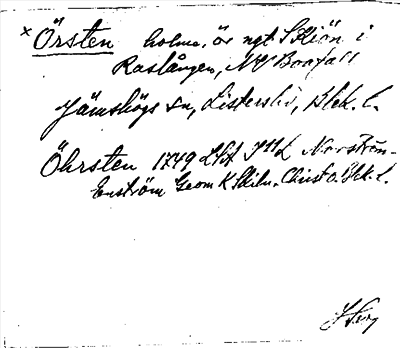 × Örsten holme, är ngt S Kiön i
Raslången, NV Boafall
Jämshögs sn, Listers hd, Blek. l.
Öhrsten 1749 LSA Norström-
Enström Geom K Skiln. Christ o. Blek. l.